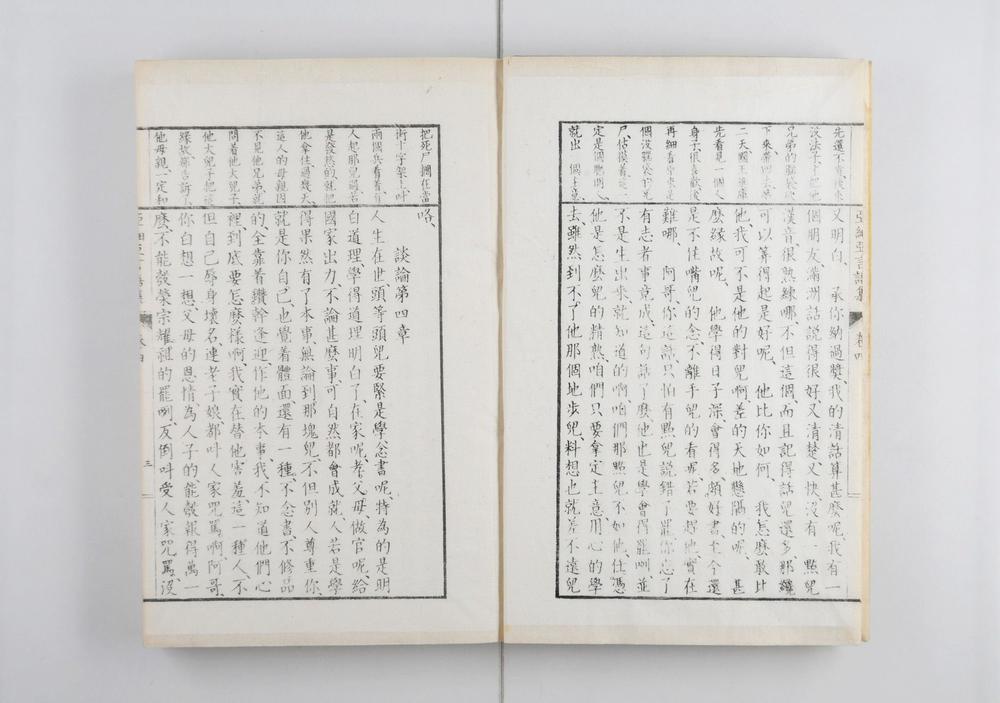 亞細亞言語集 卷四
先還不肯後來
沒法子纔把他
兄弟的腦袋
下來、帶回去、第
二天國王進庫
先看見一個人
身子、很喜歡、後
再細看、原來是
個沒腦袋的死
尸、估摸着這
定是個聰明人
就出 個主意
又明白、 承你納過獎、我的清話算甚麼呢、我有一
個朋友、滿洲話說得很好、又清楚、又快、沒有一點兒
漢音、很熟練哪、不但這個、而且記得話兒還多、那纔
可以算得起是好呢、 他比你如何、 我怎麼敢比
他、我可不是他的對兒啊、差的天地懸隔的呢、 甚
麼緣故呢、 他學得日子深、會得多、頗好書、至今還
是不住嘴兒的念、不離手兒的看呢、若要趕他實在
難哪、 阿哥、你這話、只怕有點兒說錯了罷、你忘了
有志者事竟成這句話了麼、他也是學會得罷咧、並
不是生出來就知道的啊、咱們那點兒不如他、任憑
他是怎麼兒的精熟、咱們只要拿定主意、用心的學
去、雖然到不了他那個地步兒、料想也就差不遠兒
把死尸擱在當
街十字架上、叫
兩個兵看着、有
人起那兒過、若
是發愁的、就把
他拿住、過幾天
這人的母親因
不見他兄弟、就
問着他大兒子、
他大兒子把這
緣故都告訴了
他母親、一定和
咯、
談論第四章
人生在世、頭等頭兒要緊是學念書呢、特為的是明
白道理、學得道理明白了、在家呢、孝父母、做官呢、給
國家出力、不論甚麼事、可自然都會成就、人若是學
得果然有了本事、無論到那塊兒、不但別人尊重你、
就是你自己、也覺着體面、還有一種、不念書、不修品
的、全靠着鑽幹逢迎、作他的本事、我不知道他們心
裡、到底要怎麼樣啊、我實在替他害羞、這一種人、不
但自己辱身壞名、連老子娘都叫人家咒罵啊、阿哥、
你白想一想、父母的恩情、為人子的、能彀報得萬一
麼、不能彀榮宗耀祖的罷咧、反倒叫受人家咒罵、沒
亞細亞言語集 卷四 三